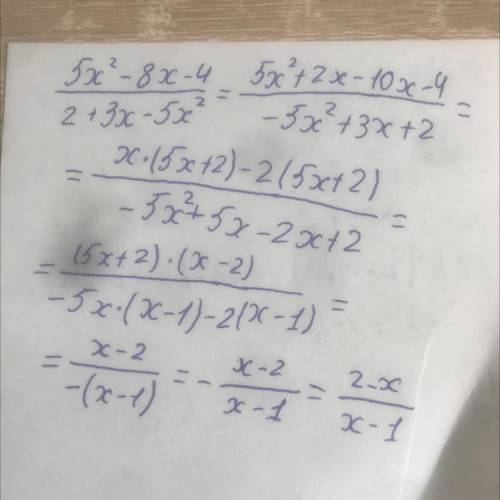 (5x²-8x-4)/(2+3x-5x²) = (5x²+2x-10x-4)/(-5x²+3x+2) =
= (x·(5x+2)-2(5x+2))/(-5x²+5x-2x+2) =
= ((5x+2)·(x-2))/(-5x·(x-1)-2(x-1)) =
= (x-2)/(-(x-1)) = -(x-2)/(x-1) = (2-x)/(x-1)